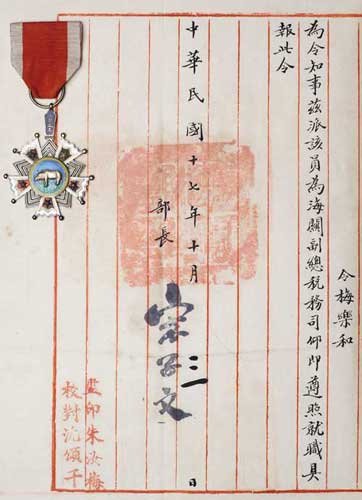 令梅樂和
為令知事茲派該員為海關副總稅務司仰即遵照就職具
報此令
中華民國十七年十月三一日
部長
宋子文
監印朱汝梅
校對沈頌